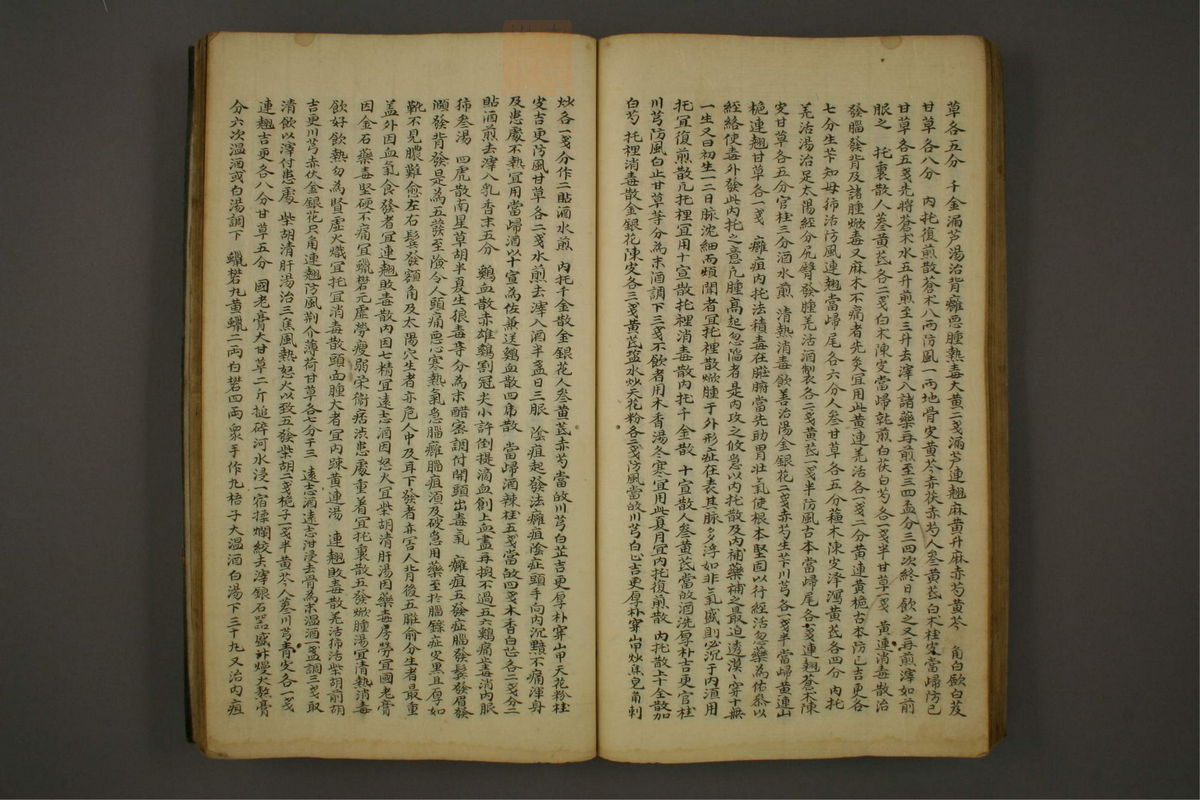 草各五分 千金漏芦湯治背癰惡腫熱毒大黃二戔漏芦連翹麻黃升麻赤芍黃芩 角白歛白芨
甘草各八分 內托復煎散蒼朮八兩防風一兩地骨安黃芩赤茯赤芍人參黃芪白朮桂安當歸防己
甘草各五戔先將蒼朮水五升煎至三升去滓入諸藥再煎至三四盃分三四次終日飮之又再煎滓如前
服之 托裏散人參黃芪各二戔白朮陳安當歸 煎白茯白芍各一戔半甘草一戔 黃連消毒散治
發腦發背及諸腫焮毒又麻木不痛者先灸宜用此黃連羌活各一戔二分黃連黃栢古本防己吉更各
七分生芐知母 活防風連翹當歸尾各六分人參甘草各五分藁本陳安澤瀉黃芪各四分 內托
羌活湯治足太陽經分尻臀發腫羌活酒製各二戔黃芪一戔半防風古本當歸尾各一戔連翹蒼朮陳
安甘草各五分官桂三分酒水煎 清熱消毒飮善治湯金銀花二戔赤芍生芐川芎各一戔半當歸黃連山
梔連翹甘草各一戔 癰疽內托法積毒在臟腑當先助胃壯氣使根本堅固以行經活 藥爲佐 以
經絡使毒外發此內托之意凡腫高起忽陷者是內攻之 急以內托散及內補藥補之最迫透 穿十無
一生又曰初生一二日脉沈細而煩悶者宜托裡散焮腫于外形症在表其脉多浮如非氣盛則必沉于內 用
托宜復煎散凡托裡宜用十宣散托裡消毒散內托千金散 十宣散人參黃芪當 酒洗厚朴吉更官桂
川芎防風白止甘草等分爲末酒調下三戔不飮者用木香湯冬寒宜用此夏月宜內托復煎散 內托散十千金散加
白芍 托裡消毒散金銀花陳安各三戔黃芪鹽水炒天花粉各二戔防風當 川芎白止吉更厚朴穿山甲炒焦皂角刺
炒各一戔分作二貼酒水煎 內托千金散金銀花人參黃芪赤芍當 川芎白芷吉更厚朴穿山甲天花粉桂
安吉更防風甘草各二戔水煎去滓入酒半盞日三服 陰疽起發法癰疽陰症頭手向內沉黯不痛渾身
及患處不熱宜用當歸酒以十宣爲佐兼送鷄血散四虎散 當歸酒辣桂五戔當 四戔木香白芷各二戔分二
貼酒煎去滓入乳香末五分 鷄血散赤雄鷄割冠尖小許倒提滴血創上血盡再換不過五六鷄痛止毒消內服
 參湯 四虎散南星草烏半夏生狼毒等分爲末醋密調付開頭出毒氣 癰疽五發症腦發鬂發眉發
 發背發是爲五發至險令人頭痛惡心寒熱氣急腦癰腦疽 及硬急用藥至於腦 症安里且厚如
靴不見膿難愈左右鬂發額角及太陽穴生者亦危人中及耳下發者亦害人背後五臟俞分生者最重
盖外因血氣食發者宜連翹敗毒散內因七情宜遠志酒因怒火宜柴胡清肝湯因藥毒房勞宜國老膏
因金石藥毒堅硬不痛宜蠟礬元虛勞瘦弱榮衛 澁患處重着宜托裏散五發焮腫湯宜清熱消毒
飮好飮熱勿爲腎虛火熾宜托宜消毒散頭面腫大者宜內踈黃連湯 連翹敗毒散羌活 活柴胡前胡
吉更川芎赤伏金銀花只角連翹防風荊介薄荷甘草各七分干三 遠志酒遠志泔浸去骨爲末溫酒一盞調三戔取
清飮以滓付患處 柴胡清肝湯治三焦風熱怒火以致五發柴胡二戔梔子一戔半黃芩人參川芎青安各一戔
連翹吉更各八分甘草五分 國老膏大甘草二斤搥碎河水浸一宿揉爛絞去滓銀石器盛 慢火熬膏
分六次溫酒或白湯調下 蠟礬丸黃蠟二兩白礬四兩衆手作丸梧子大溫酒白湯下三十丸又治內疽